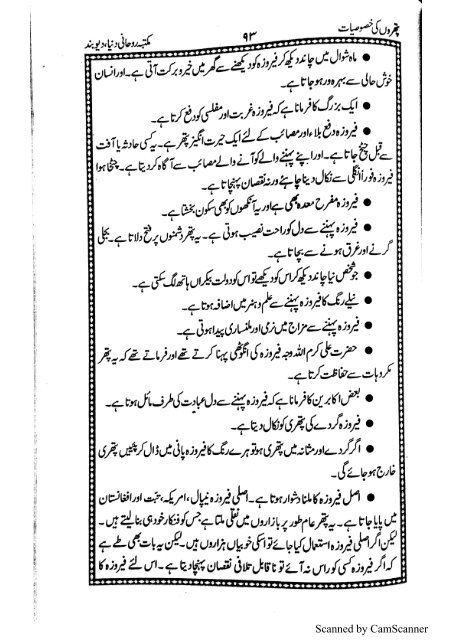 پتھروں کی خصوصیات ۹۳ مکتبہ روحانی دنیا، دیوبند
● ماہ شوال میں چاند دیکھ کر فیروزہ کو دیکھنے سے گھر میں خیر و برکت آتی ہے۔ اور انسان
خوش حالی سے بہرہ ور ہو جاتا ہے۔
● ایک بزرگ کا فرمانا ہے کہ فیروزہ غربت اور مفلسی کو دفع کرتا ہے۔
● فیروزہ دفع بلاء اور مصائب کے لئے ایک حیرت انگیز پتھر ہے۔ یہ کسی حادثہ یا آفت
سے قبل چٹخ جاتا ہے۔ اور اپنے پہننے والے کو آنے والے مصائب سے آگاہ کر دیتا ہے۔ چٹخا ہوا
فیروزہ فوراً انگلی سے نکال دینا چاہئے ورنہ نقصان پہنچاتا ہے۔
● فیروزہ مفرح معدہ بھی ہے اور یہ آنکھوں کو بھی سکون بخشتا ہے۔
● فیروزہ پہننے سے دل کو راحت نصیب ہوتی ہے۔ یہ پتھر دشمنوں پر فتح دلاتا ہے۔ بجلی
گرنے اور غرق ہونے سے بچاتا ہے۔
● جو شخص نیا چاند دیکھ کر اس کو دیکھے تو اس کو دولت بیکراں ہاتھ لگ سکتی ہے۔
● نیلے رنگ کا فیروزہ پہننے سے علم و ہنر میں اضافہ ہوتا ہے۔
● فیروزہ پہننے سے مزاج میں نرمی اور ملنساری پیدا ہوتی ہے۔
● حضرت علی کرم اللہ وجہہ فیروزہ کی انگوٹھی پہنا کرتے تھے اور فرماتے تھے کہ یہ پتھر
مکروہات سے حفاظت کرتا ہے۔
● بعض اکابرین کا فرمانا ہے کہ فیروزہ پہننے سے دل عبادت کی طرف مائل ہوتا ہے۔
● فیروزہ گردے کی پتھری کو نکال دیتا ہے۔
● اگر گردے اور مثانہ میں پتھری ہو تو ہرے رنگ کا فیروزہ پانی میں ڈال کر پئیں پتھری
خارج ہو جائے گی۔
● اصل فیروزہ کا ملنا دشوار ہوتا ہے۔ اصلی فیروزہ نیپال، امریکہ، تبت اور افغانستان
میں پایا جاتا ہے۔ یہ پتھر عام طور پر بازاروں میں نقلی ملتا ہے جس کو فنکار خود ہی بنا لیتے ہیں۔
لیکن اگر اصلی فیروزہ استعمال کیا جائے تو اسکی خوبیاں ہزاروں ہیں۔ لیکن یہ بات بھی طے ہے
کہ اگر فیروزہ کسی کو راس نہ آئے تو ناقابل تلافی نقصان پہنچا دیتا ہے۔ اس لئے فیروزہ کا
Scanned by CamScanner